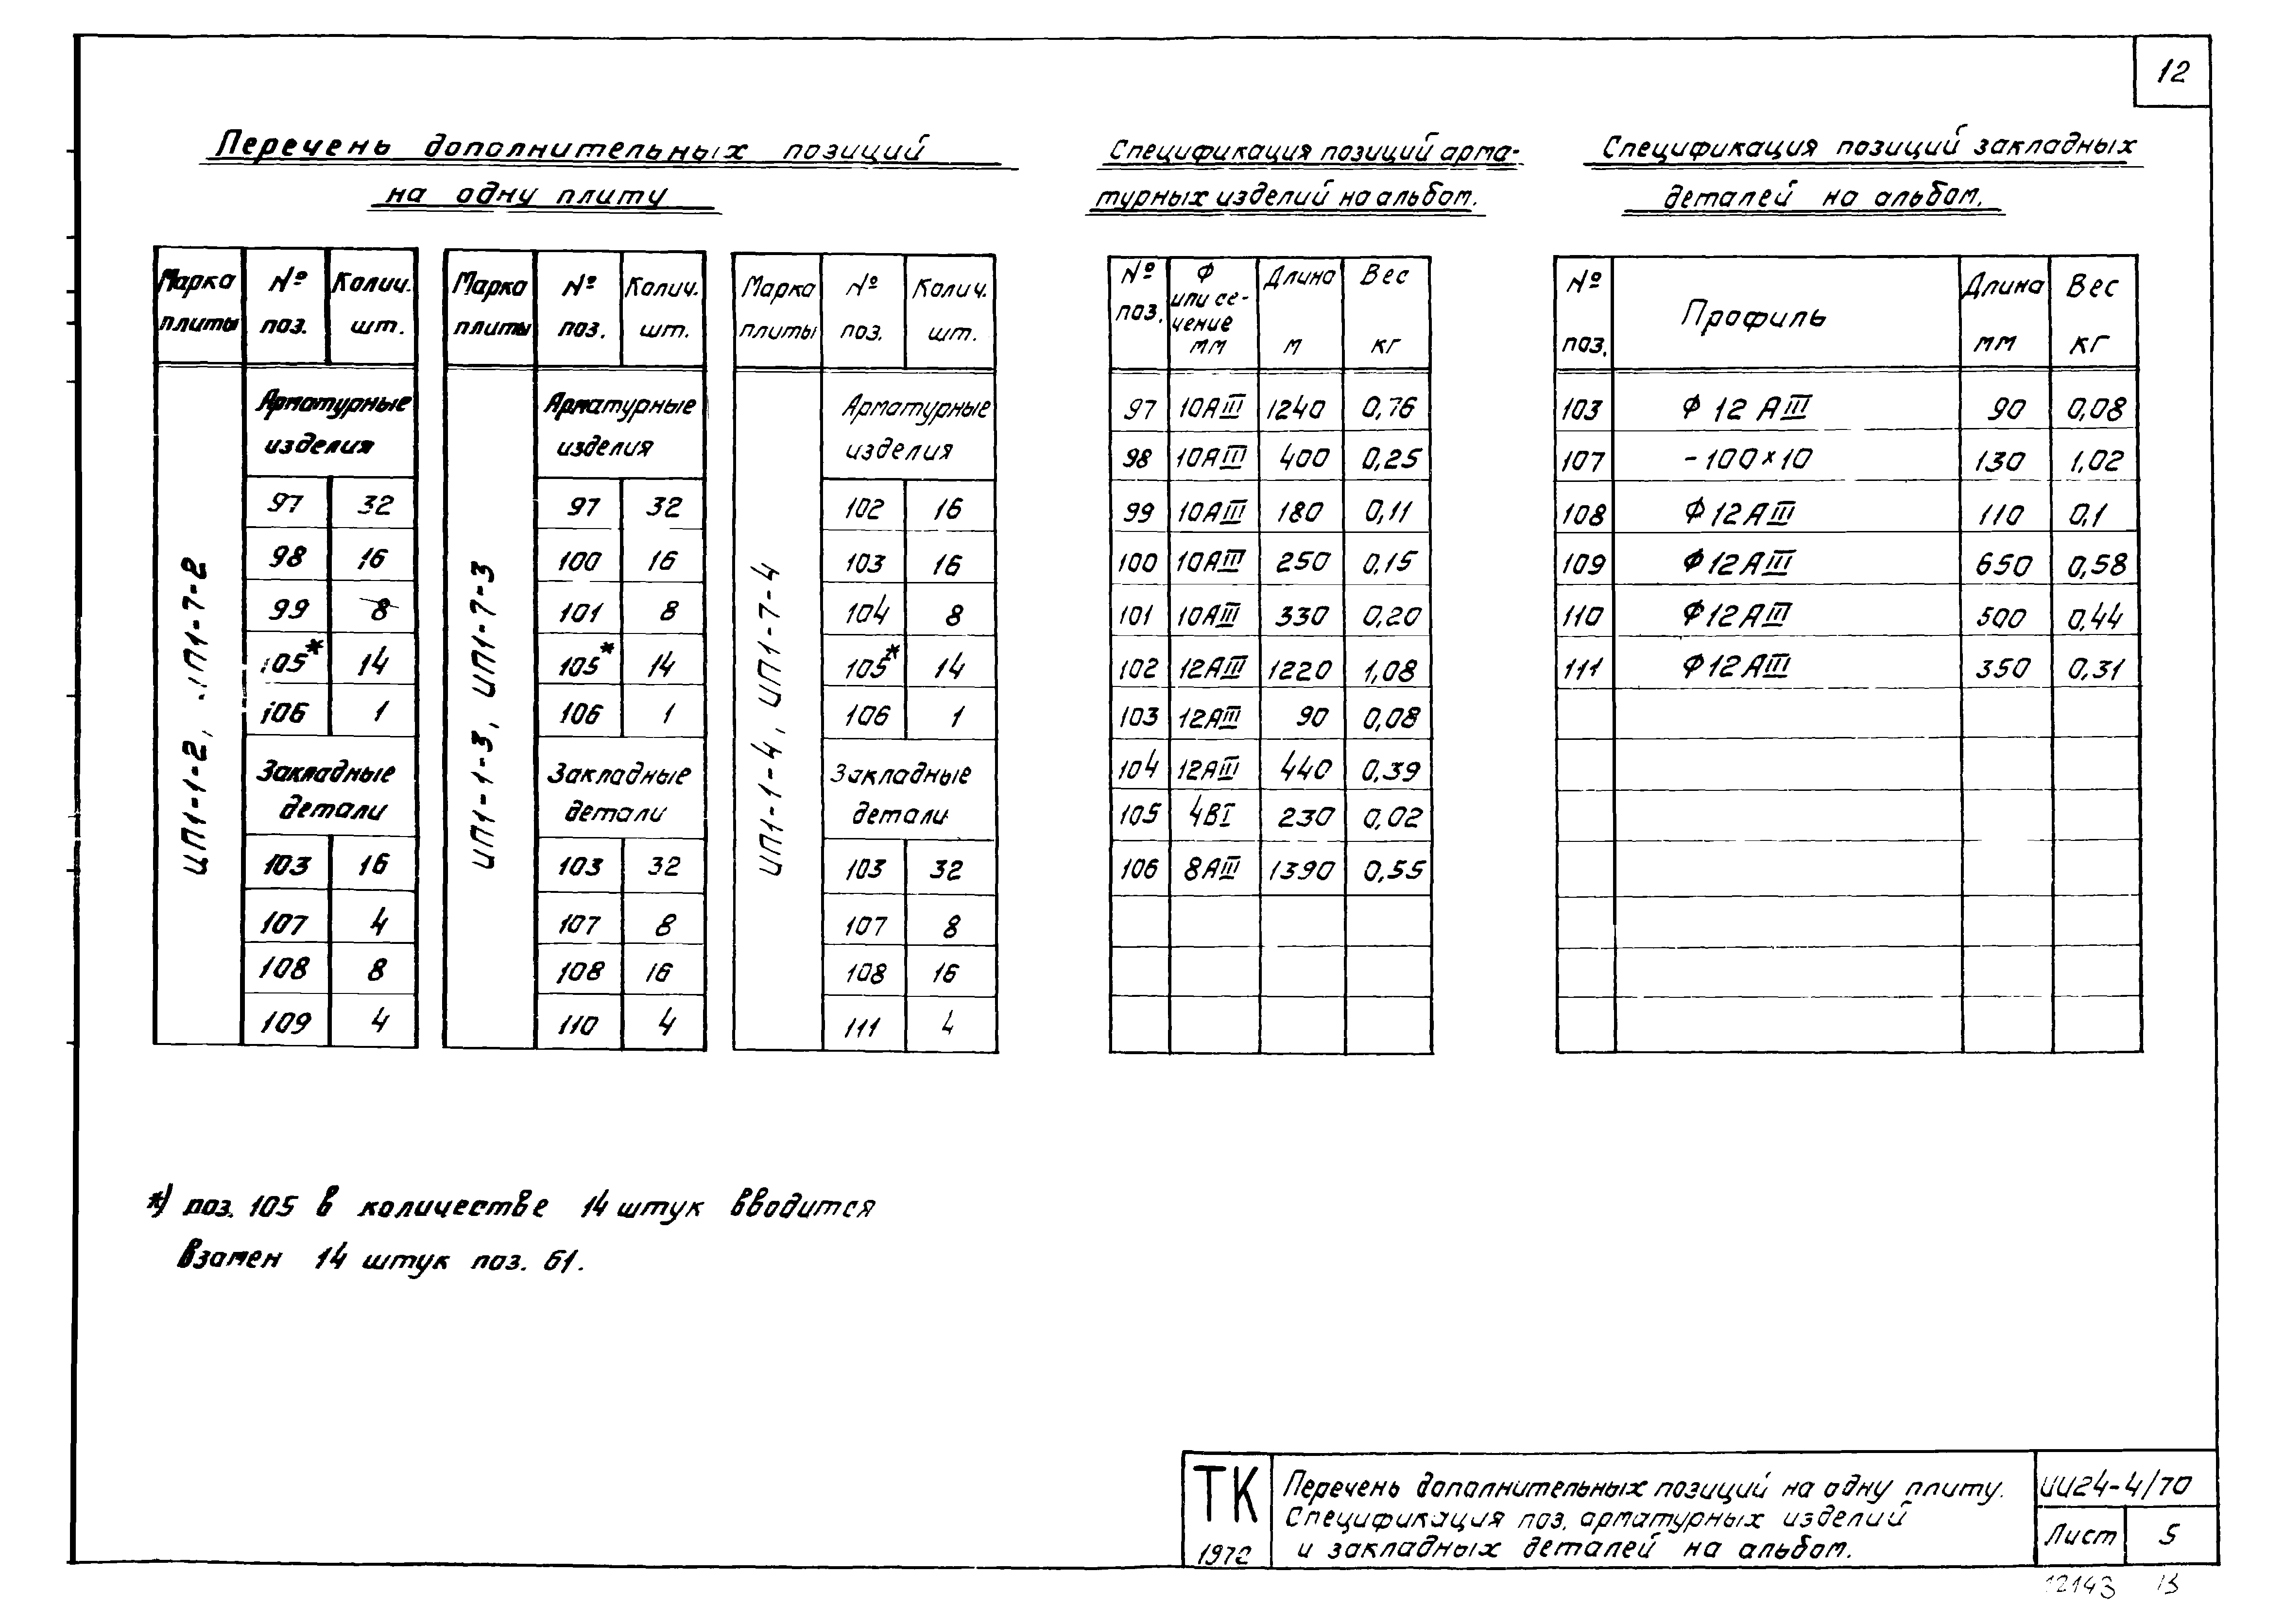 12
Перечень дополнительных позиций
на одну плиту
Марка плиты | № поз. | Колич. шт.
ИП1-1-2, ИП1-7-2
Арматурные изделия
97 | 32
98 | 16
99 | 8
105* | 14
106 | 1
Закладные детали
103 | 16
107 | 4
108 | 8
109 | 4
Марка плиты | № поз. | Колич. шт.
ИП1-1-3, ИП1-7-3
Арматурные изделия
97 | 32
100 | 16
101 | 8
105* | 14
106 | 1
Закладные детали
103 | 32
107 | 8
108 | 16
110 | 4
Марка плиты | № поз. | Колич. шт.
ИП1-1-4, ИП1-7-4
Арматурные изделия
102 | 16
103 | 16
104 | 8
105* | 14
106 | 1
Закладные детали
103 | 32
107 | 8
108 | 16
111 | 4
Спецификация позиций арма-
турных изделий на альбом.
№ поз. | Ф или се-чение мм | Длина м | Вес кг
97 | 10АIII | 1240 | 0,76
98 | 10АIII | 400 | 0,25
99 | 10АIII | 180 | 0,11
100 | 10АIII | 250 | 0,15
101 | 10АIII | 330 | 0,20
102 | 12АIII | 1220 | 1,08
103 | 12АIII | 90 | 0,08
104 | 12АIII | 440 | 0,39
105 | 4ВI | 230 | 0,02
106 | 8АIII | 1390 | 0,55
Спецификация позиций закладных
деталей на альбом.
№ поз. | Профиль | Длина мм | Вес кг
103 | Ф 12 АIII | 90 | 0,08
107 | -100×10 | 130 | 1,02
108 | Ф12АIII | 110 | 0,1
109 | Ф12АIII | 650 | 0,58
110 | Ф12АIII | 500 | 0,44
111 | Ф12АIII | 350 | 0,31
*) поз. 105 в количестве 14 штук вводится
взамен 14 штук поз. 61.
ТК
1972
Перечень дополнительных позиций на одну плиту.
Спецификация поз. арматурных изделий
и закладных деталей на альбом.
ИИ24-4/70
Лист 5
12143 13